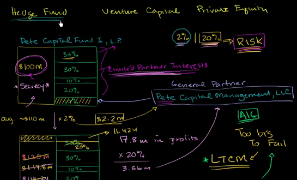 Hedge Fund Venture Capital Private Equity
Pete Capital Fund I, L.P.
2% 20% → RISK
30%
$100m 30%
Limited Partner Interests
20%
General Partner
Pete Capital Management, LLC
"Secrets"
10%
avg. $110m × 2% $2.2m
AIG
11.424
17.8m in profits
Too big
To Fail
× 20%
30%
* LTCM
3.56m
10%